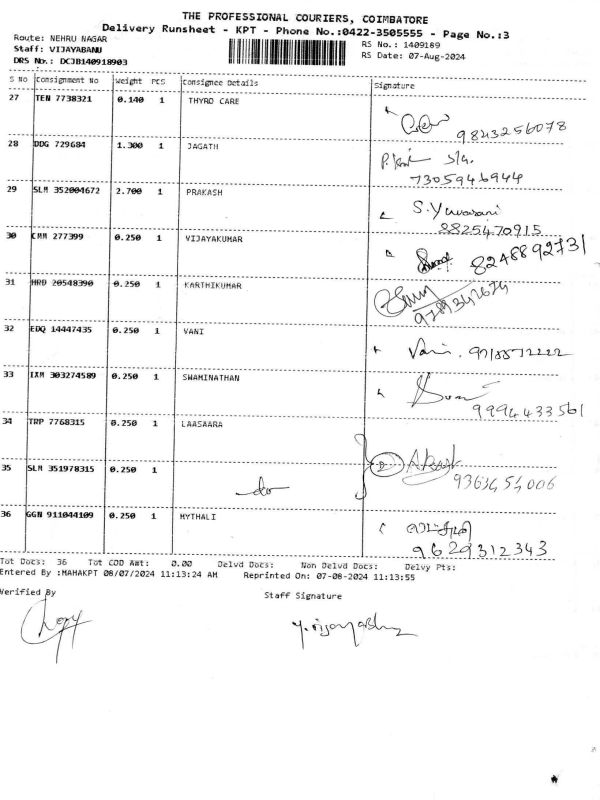 THE PROFESSIONAL COURIERS, COIMBATORE
Delivery Runsheet - KPT - Phone No.:0422-3505555 - Page No.:3
Route: NEHRU NAGAR
Staff: VIJAYABANU
DRS No.: DCJB140918903
RS No.: 1409189
RS Date: 07-Aug-2024
S No Consignment No Weight PCS Consignee Details Signature
27 TEN 7738321 0.140 1 THYRO CARE
9843256078
28 DDG 729684 1.300 1 JAGATH
7305946944
29 SLM 352004672 2.700 1 PRAKASH
S. Yuvarani
8825470915
30 CMM 277399 0.250 1 VIJAYAKUMAR
8248892731
31 HRD 20548390 0.250 1 KARTHIKUMAR
9789342674
32 EDQ 14447435 0.250 1 VANI
Vani.
33 IXM 303274589 0.250 1 SWAMINATHAN
9994433561
34 TRP 7768315 0.250 1 LAASAARA
35 SLM 351978315 0.250 1
do
9363454006
36 GGN 911044109 0.250 1 MYTHALI
9629312343
Tot Docs: 36 Tot COD Amt: 0.00 Delvd Docs: Non Delvd Docs: Delvy Pts:
Entered By :MAHAKPT 08/07/2024 11:13:24 AM Reprinted On: 07-08-2024 11:13:55
Verified By Staff Signature